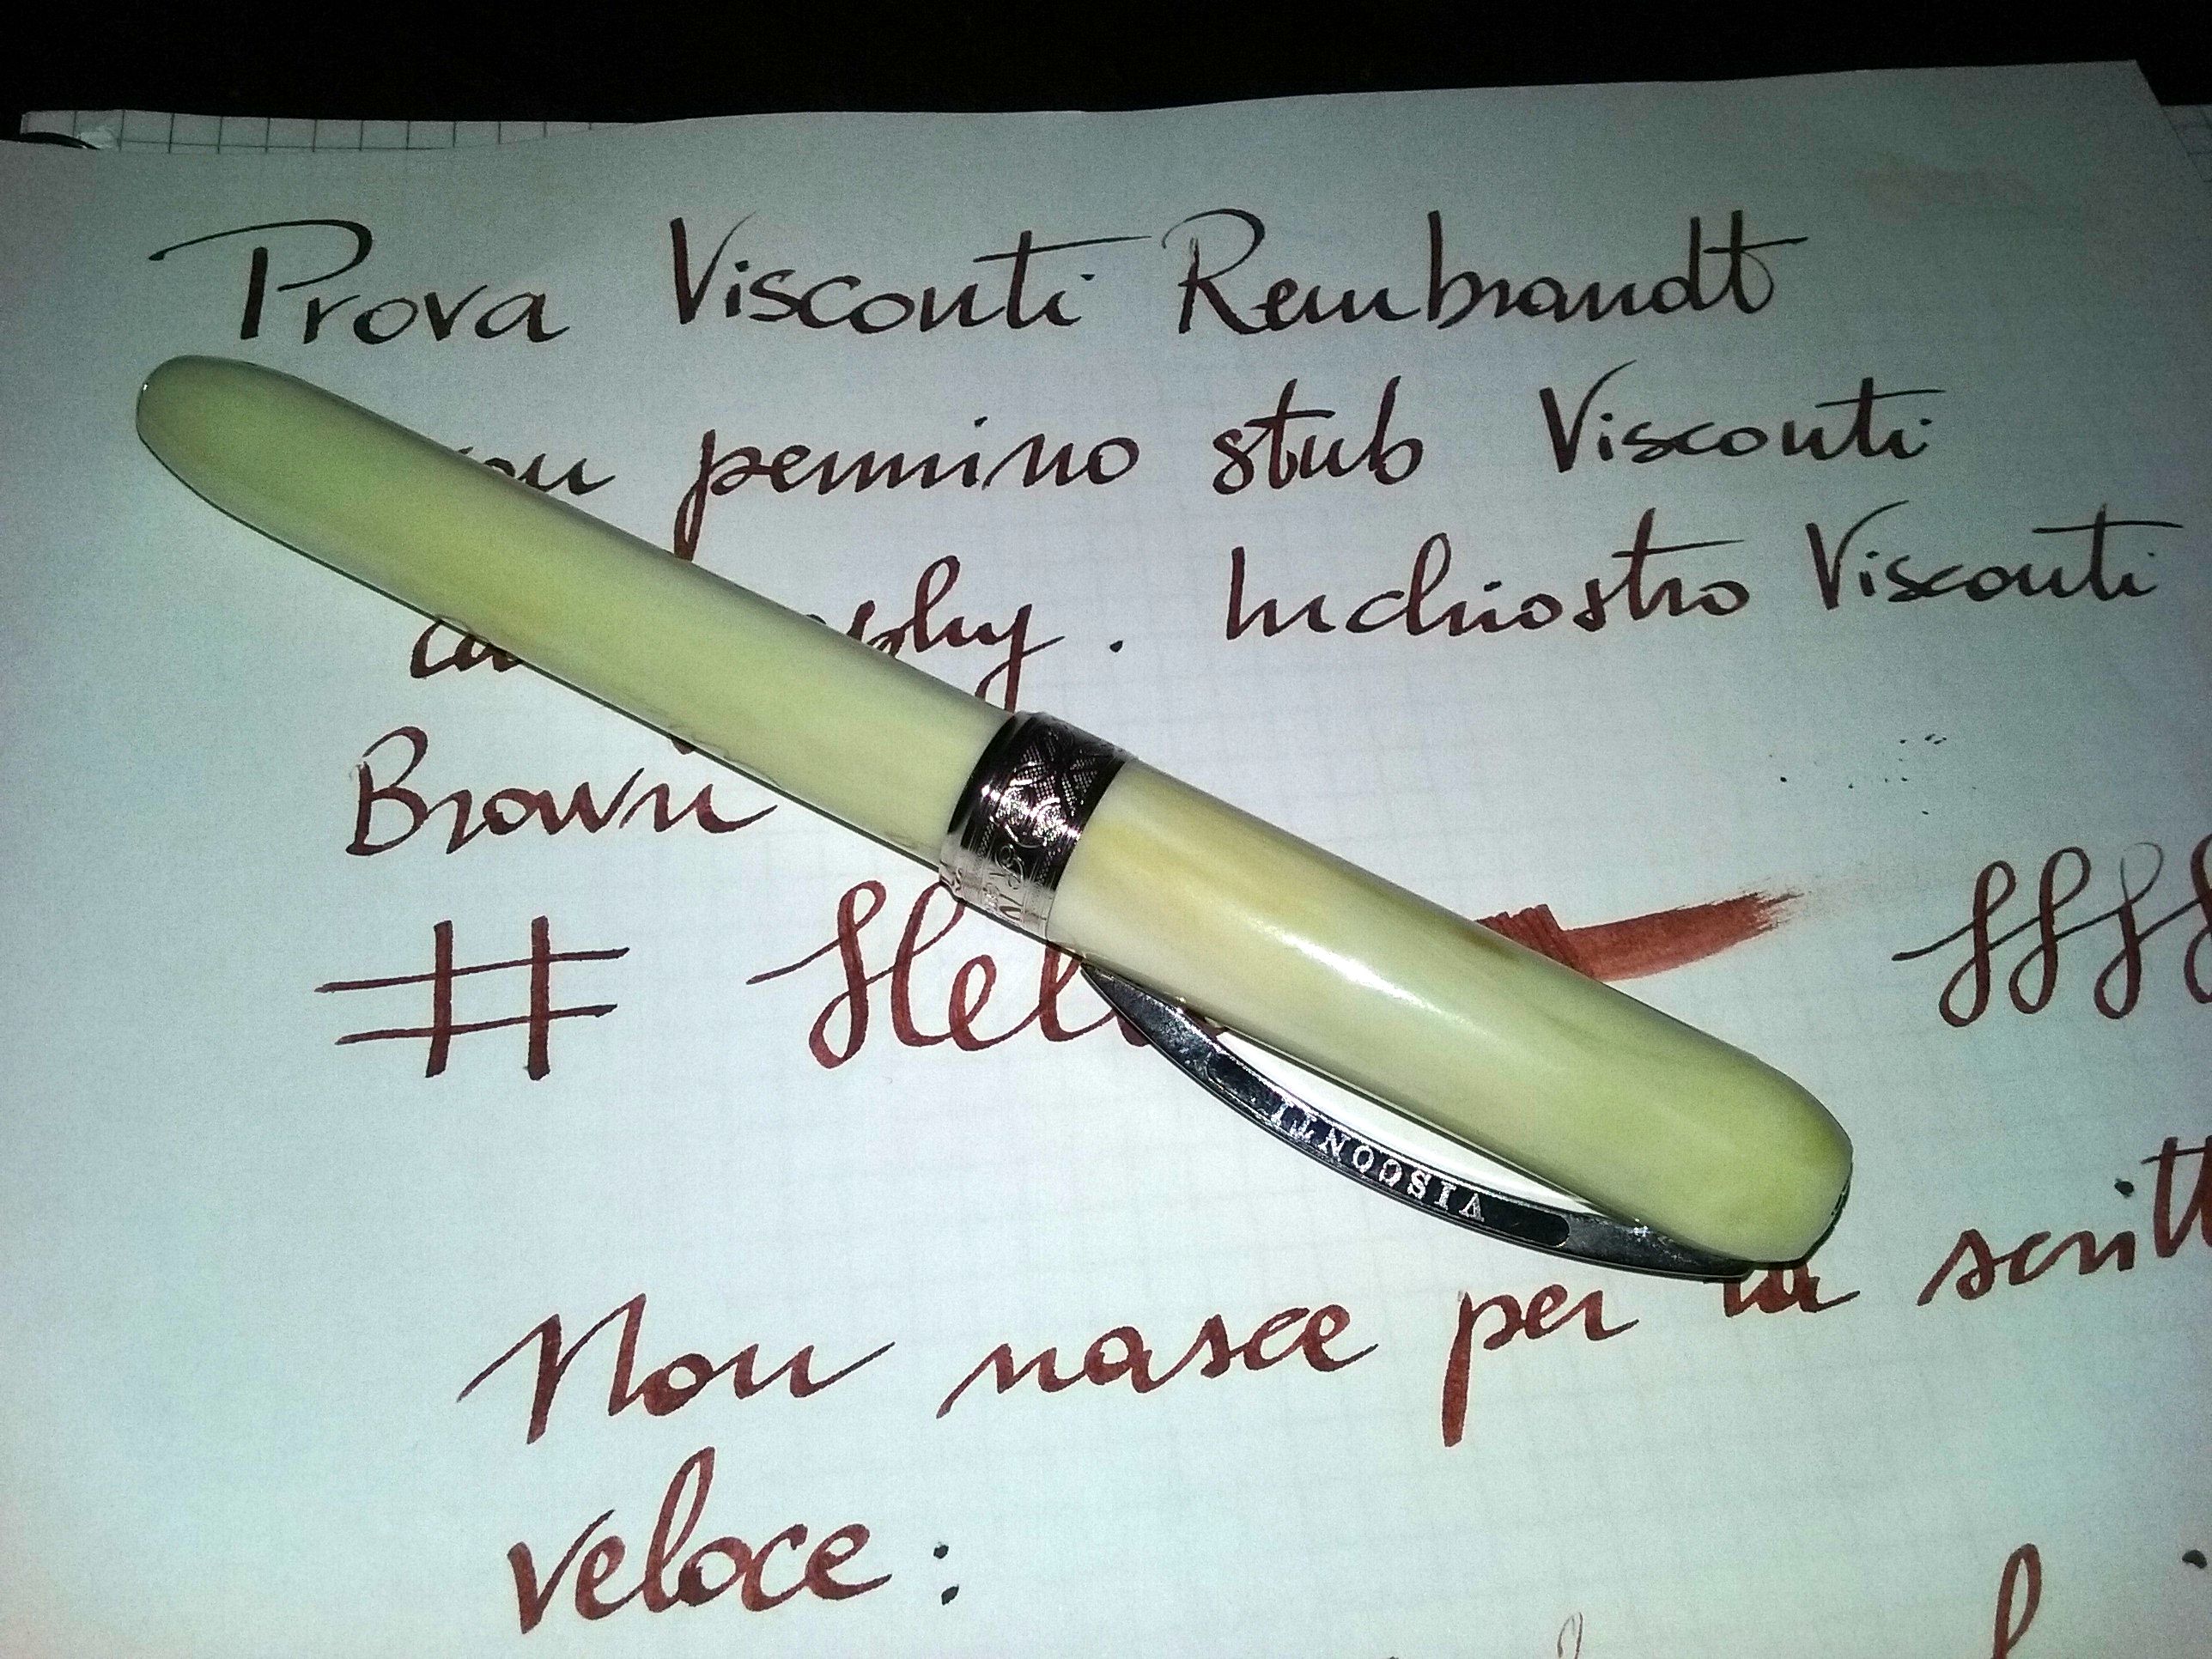 Prova Visconti Rembrandt
pennino stub Visconti
Inchiostro Visconti
Brown
#
VISCONTI
Non nasce per la
veloce :